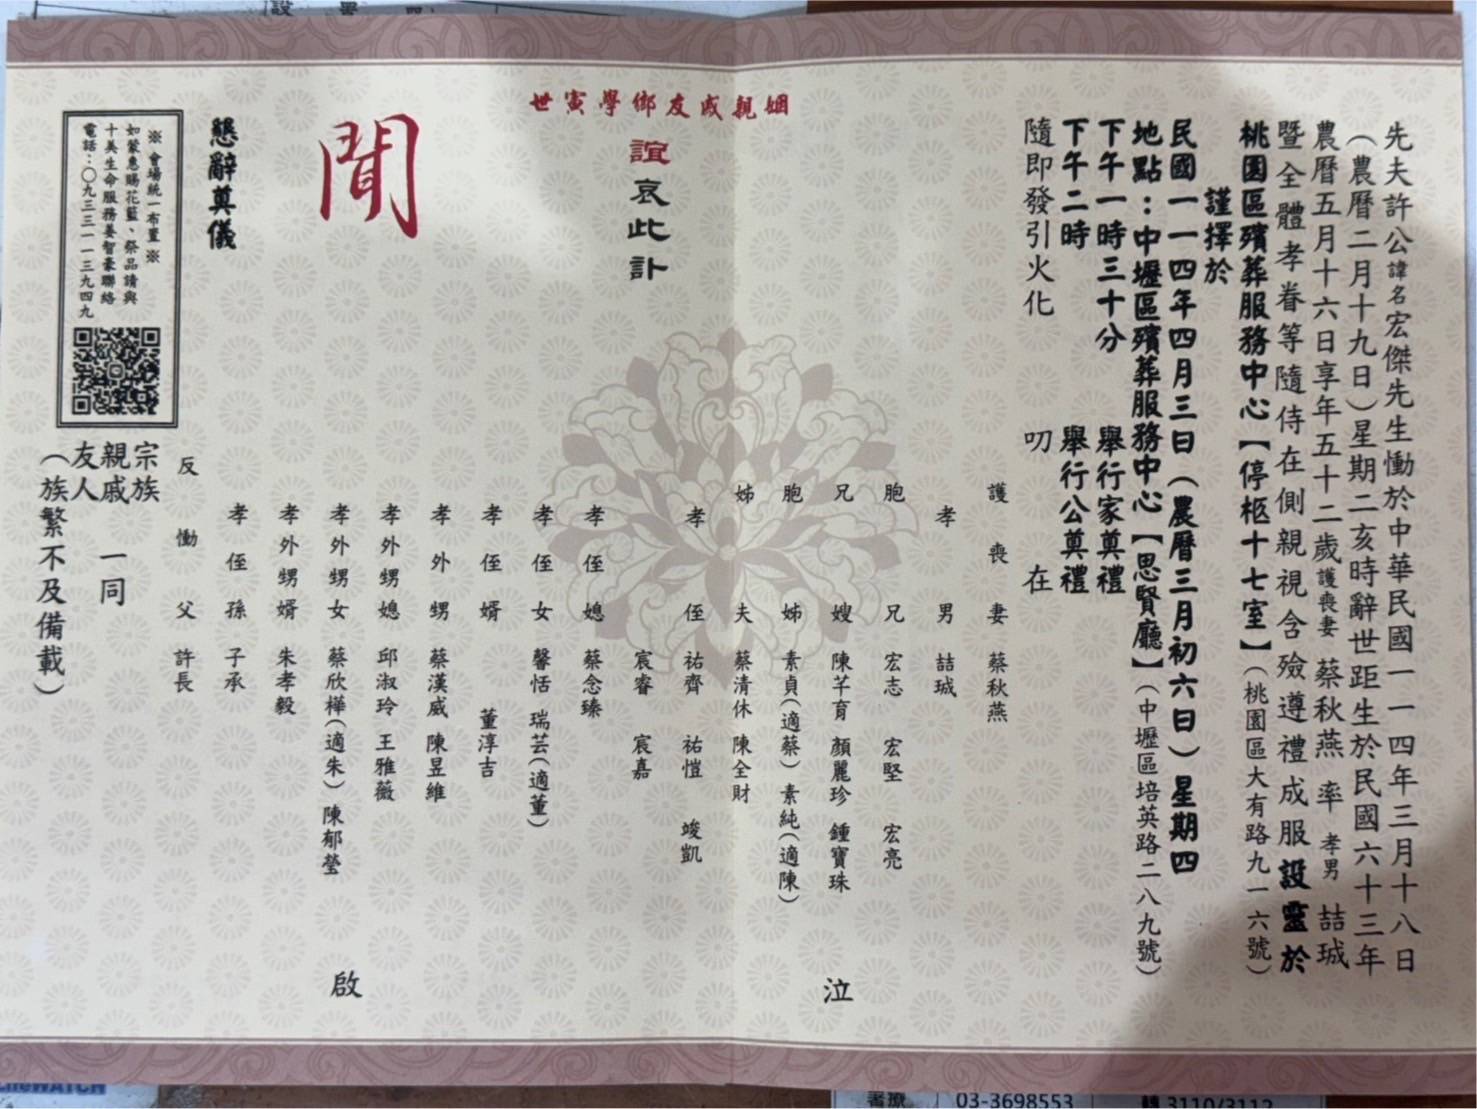 先夫許公諱名宏傑先生慟於中華民國一一四年三月十八日
（農曆二月十九日）星期二亥時辭世距生於民國六十三年
農曆五月十六日享年五十二歲護喪妻 蔡秋燕 率 孝男 喆珹
暨全體孝眷等隨侍在側親視含殮遵禮成服設靈於
桃園區殯葬服務中心【停柩十七室】（桃園區大有路九一六號）
謹擇於
民國一一四年四月三日（農曆三月初六日）星期四
地點：中壢區殯葬服務中心【思賢廳】（中壢區培英路二八九號）
下午一時三十分 舉行家奠禮
下午二時 舉行公奠禮
隨即發引火化 叨在
姻親戚友鄉學寅世
誼哀此訃
聞
護喪妻 蔡秋燕
孝男 喆珹
胞兄 宏志 宏堅 宏亮
兄嫂 陳芊育 顏麗珍 鍾寶珠
胞姊 素貞（適蔡） 素純（適陳）
姊夫 蔡清休 陳全財
孝侄 祐齊 祐愷 峻凱
宸睿 宸嘉
孝侄媳 蔡念臻
孝侄女 馨恬 瑞芸（適董）
孝侄婿 董淳吉
孝外甥 蔡漢威 陳昱維
孝外甥媳 邱淑玲 王雅薇
孝外甥女 蔡欣樺（適朱） 陳郁瑩
孝外甥婿 朱孝毅
孝侄孫 子承
反慟父 許長
泣
啟
宗族
親戚 一同
友人
（族繁不及備載）
懇辭奠儀
※ 會場統一布置 ※
如蒙惠賜花籃、祭品請與
十美生命服務姜智豪聯絡
電話：〇九三三一一三九四九
03-3698553
轉 3110/3112